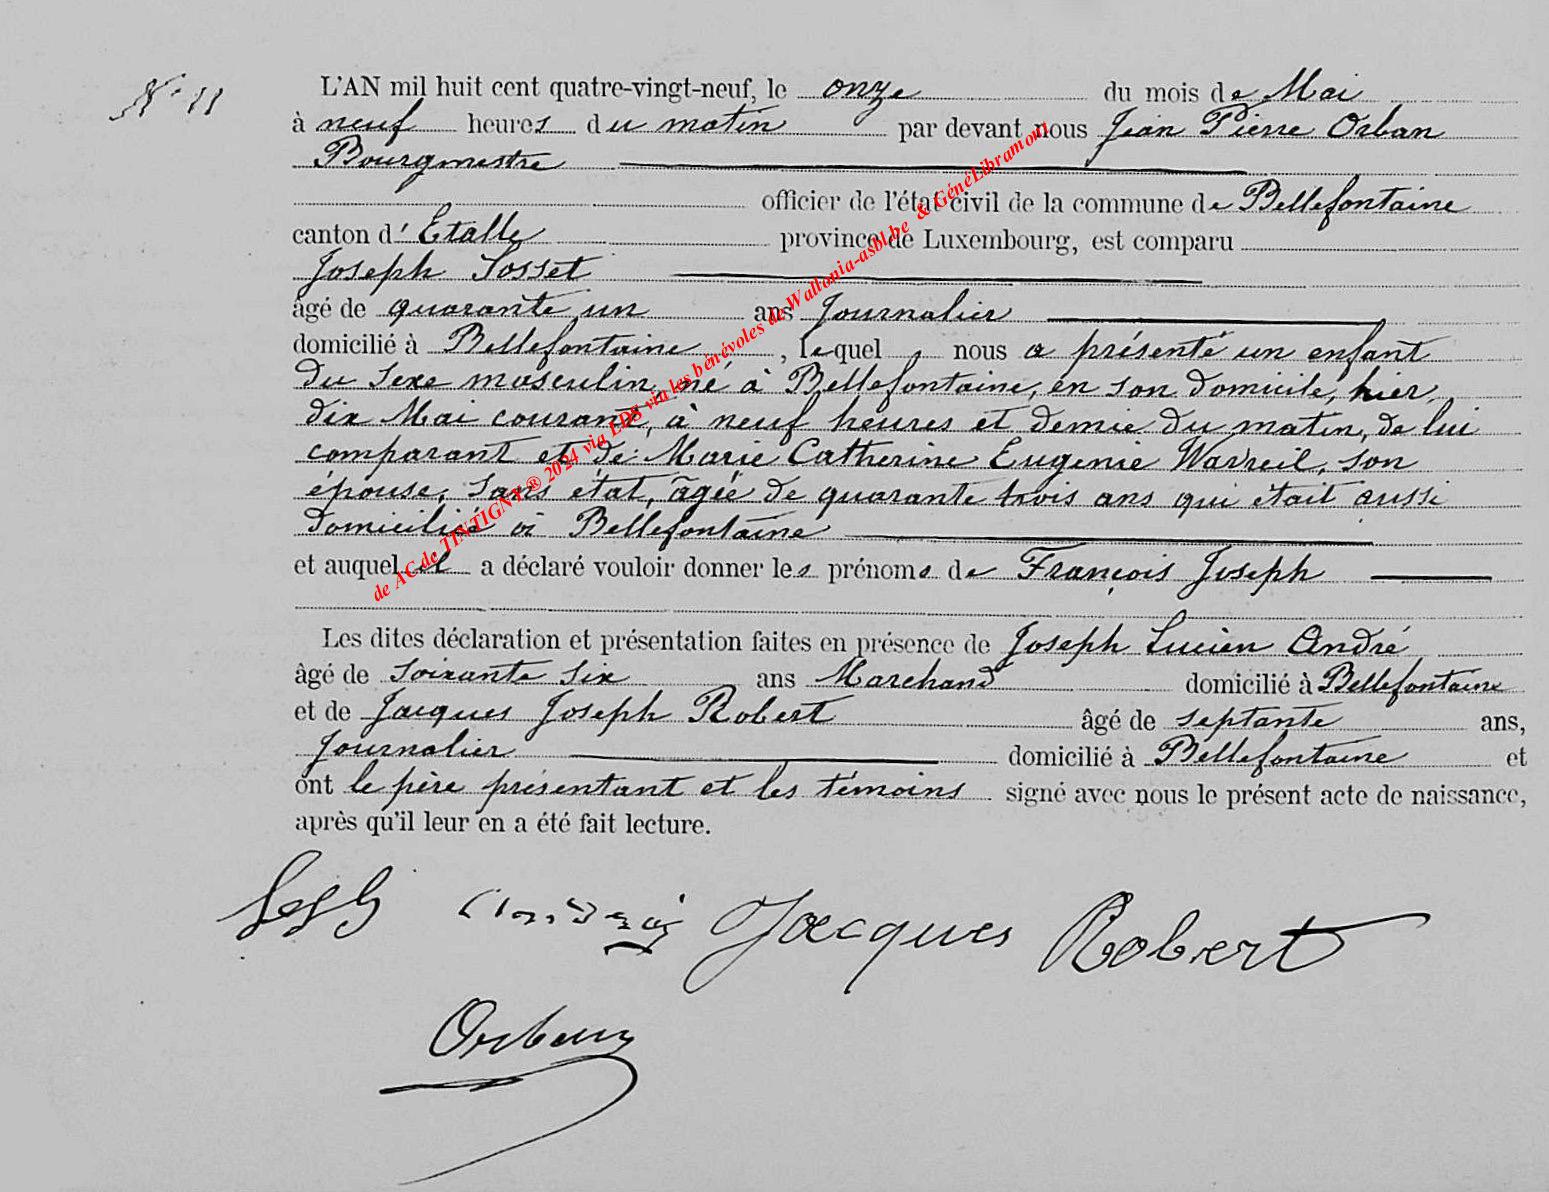 N° 11
L'AN mil huit cent quatre-vingt-neuf, le onze du mois de Mai
à neuf heures du matin par devant nous Jean Pierre Orban
Bourgmestre
officier de l'état civil de la commune de Bellefontaine
canton d' Etalle province de Luxembourg, est comparu
Joseph Sosset
âgé de quarante un ans Journalier
domicilié à Bellefontaine, lequel nous a présenté un enfant
du sexe masculin, né à Bellefontaine, en son domicile, hier,
dix Mai courant, à neuf heures et demie du matin, de lui
comparant et de Marie Catherine Eugenie Wavreil, son
épouse, sans état, âgée de quarante trois ans qui était aussi
domiciliée à Bellefontaine
et auquel il a déclaré vouloir donner les prénoms de François Joseph
Les dites déclaration et présentation faites en présence de Joseph Lucien André
âgé de soixante six ans Marchand domicilié à Bellefontaine
et de Jacques Joseph Robert âgé de septante ans,
Journalier domicilié à Bellefontaine et
ont le père présentant et les témoins signé avec nous le présent acte de naissance,
après qu'il leur en a été fait lecture.
Jacques Robert
Orban
de AC de TINTIGNY ® 2024 via EDS via les bénévoles de Wallonia-asbl.be & GénéLibramont